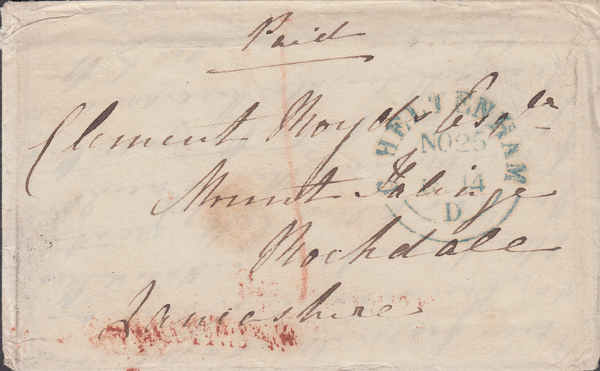 Paid
Clement Royds Esqr
Mount Falinge
Rochdale
Lancashire
CHELTENHAM
NO 25
D